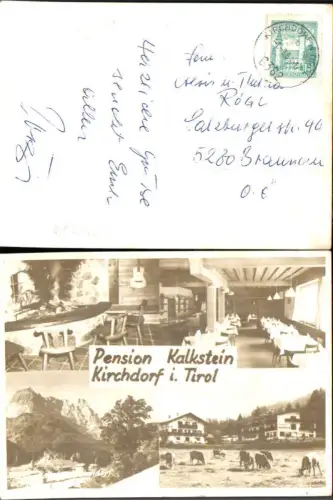 Herzliche Grüsse
sendet Euch
allen
Fam.
Alois u. Theresia
RÖGL
Salzburger str. 46
5280 Braunau
O.Ö
KIRCHDORF
Pension Kalkstein
Kirchdorf i. Tirol